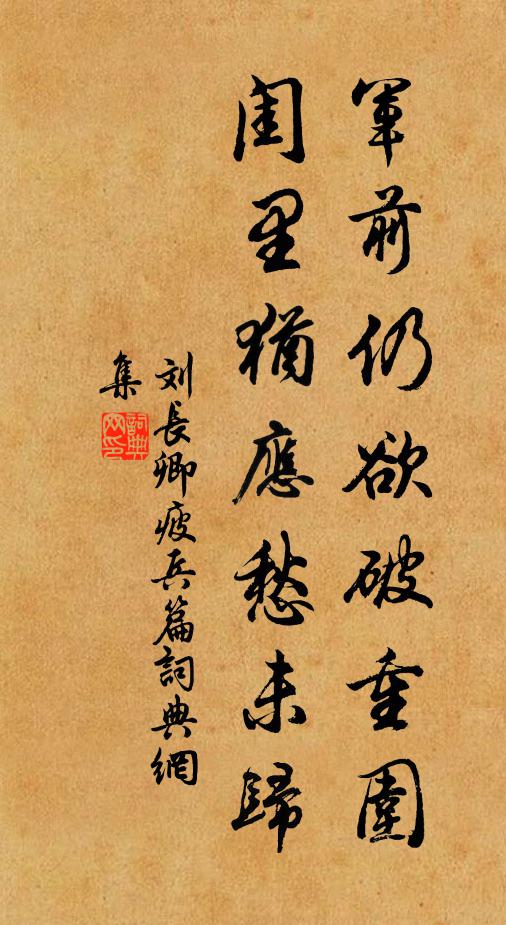 軍前仍欲破重圍
閨里猶應愁未歸
刘長卿疲兵篇詞典網
集
詞典网印